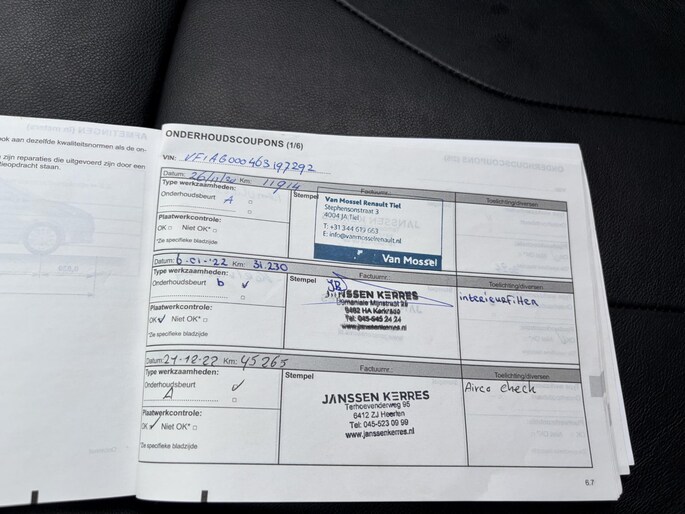 AFMETINGEN (in meters)
ook aan dezelfde kwaliteitsnormen als de on-
zijn reparaties die uitgevoerd zijn door een
tieopdracht staan.
ONDERHOUDSCOUPONS (1/6)
VIN: VF1AG000463197292
Datum: 26/11/20 Km: 11914 Factuurnr.: Toelichting/diversen
Type werkzaamheden: Stempel
Onderhoudsbeurt A
Plaatwerkcontrole:
OK Niet OK*
*Zie specifieke bladzijde
Van Mossel Renault Tiel
Stephensonstraat 3
4004 JA Tiel
T: +31 344 619 663
E: info@vanmosselrenault.nl
Van Mossel
Datum: 6-01-'22 Km: 31.230 Factuurnr.: Toelichting/diversen
Type werkzaamheden: Stempel
Onderhoudsbeurt b ✓
Plaatwerkcontrole:
OK ✓ Niet OK*
*Zie specifieke bladzijde
JANSSEN KERRES
Domaniale Mijnstraat 25
6462 HA Kerkrade
Tel: 045-545 24 24
www.janssenkerres.nl
interieurfilter
Datum: 21-12-22 Km: 45265 Factuurnr.: Toelichting/diversen
Type werkzaamheden: Stempel
Onderhoudsbeurt ✓
A
Plaatwerkcontrole:
OK ✓ Niet OK*
*Zie specifieke bladzijde
JANSSEN KERRES
Terhoevenderweg 95
6412 ZJ Heerlen
Tel: 045-523 09 99
www.janssenkerres.nl
Airco check
6.7